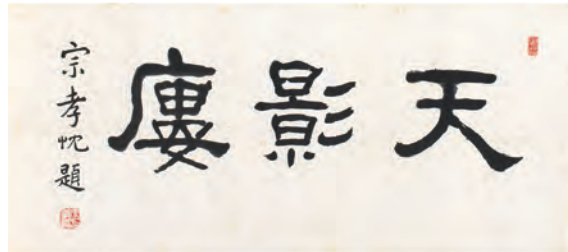 天影廔
宗孝忱題